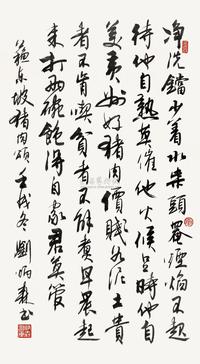 净洗鐺少着水柴頭罨煙焰不起
待他自熟莫催他火候足時他自
美黄州好猪肉價賤如泥土貴
者不肯喫貧者不解煮早晨起
来打两碗飽得自家君莫管
蘇東坡猪肉頌 壬戌冬 劉炳森书